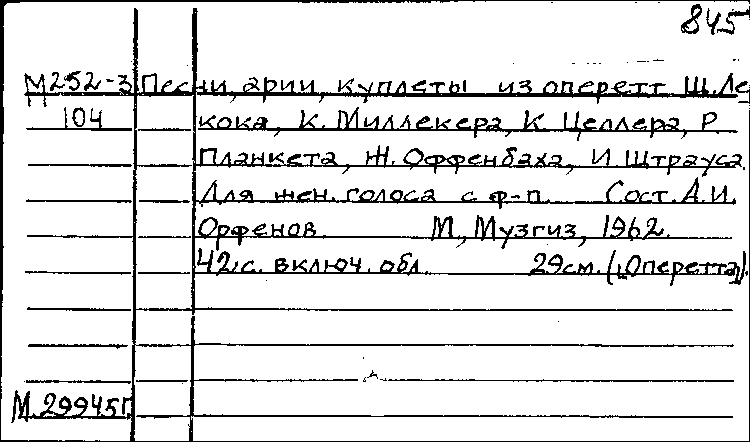 845
М252-3 Песни, арии, куплеты из оперетт Ш. Ле
104 кока, К. Миллекера, К. Целлера, Р.
Планкета, Ж. Оффенбаха, И Штрауса.
Для жен. голоса с ф-п. Сост. А.И.
Орфенов. М., Музгиз, 1962.
42 с. включ. обл. 29 см. ("Оперетта").
М.29945П